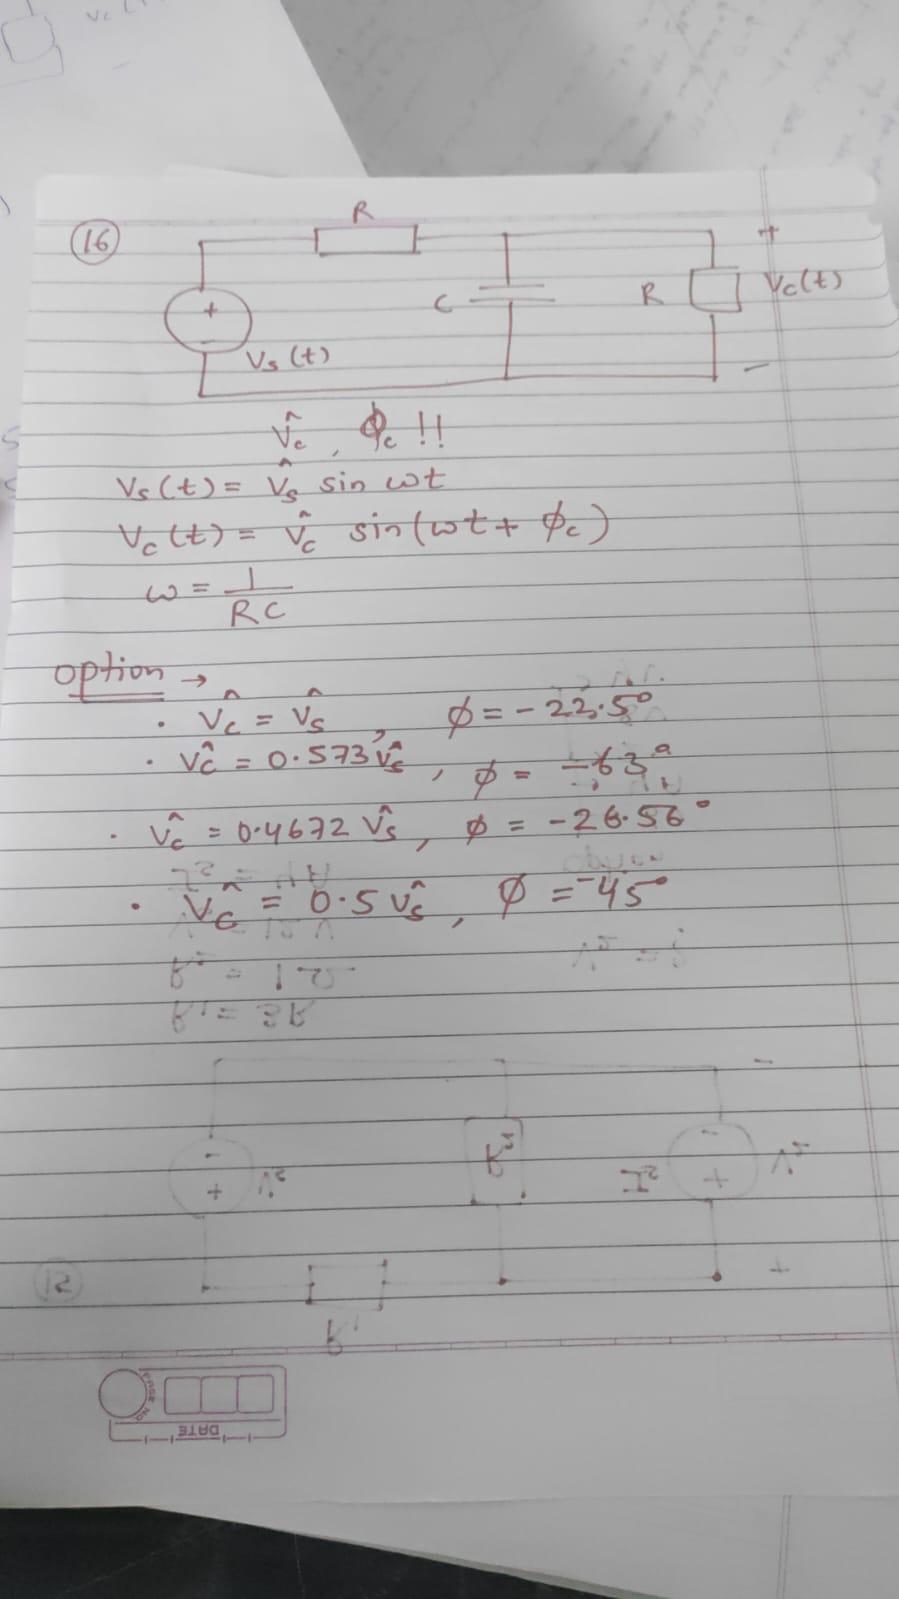 16
R
C
R
Vc(t)
+
-
+
-
Vs(t)
V̂c, ϕc !!
Vs(t) = V̂s sin ωt
Vc(t) = V̂c sin(ωt + ϕc)
ω = 1/RC
Option →
· V̂c = V̂s, ϕ = -22.5°
· V̂c = 0.573 V̂s, ϕ = -63°
· V̂c = 0.4672 V̂s, ϕ = -26.56°
· V̂c = 0.5 V̂s, ϕ = -45°
PAGE NO.
DATE